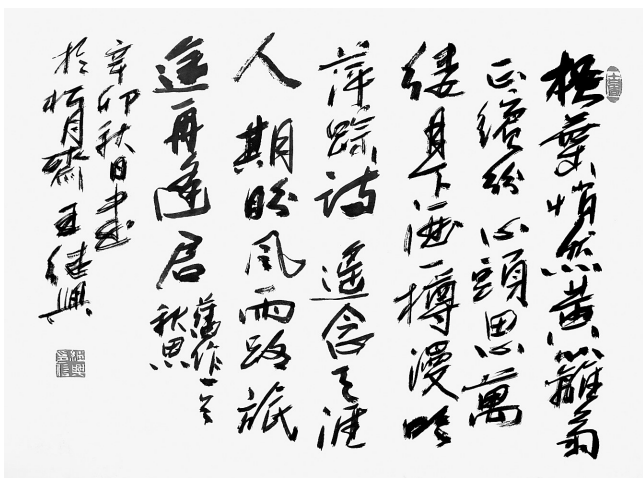 楓葉悄然黄籬菊
正繽紛心頭思萬
縷月下酒一樽漫吟
萍踪詩遥念天涯
人期盼風雨路旅
途再逢君
舊作一首
秋思
辛卯秋日書
於月齋王興